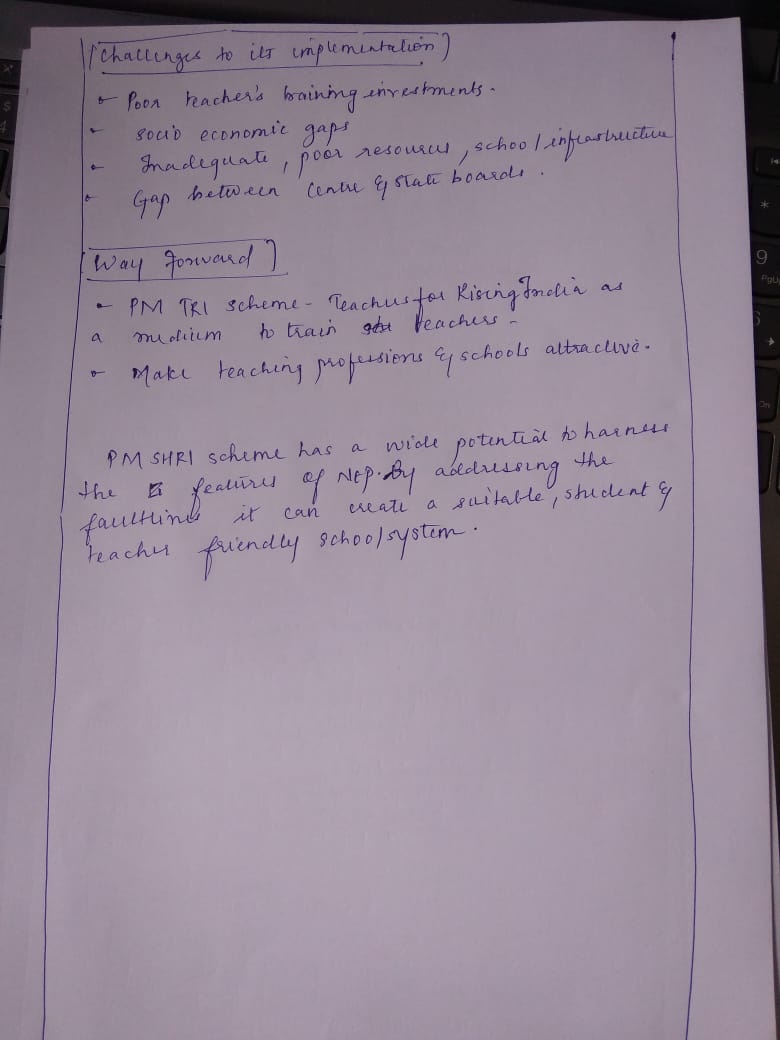 [Challenges to its implementation]
- Poor teacher's training investments.
- socio economic gaps
- Inadequate, poor resources, school infrastructure
- Gap between Centre & state boards.
[Way Forward]
- PM TRI scheme - Teachers for Rising India as
a medium to train teachers.
- Make teaching professions & schools attractive.
PM SHRI scheme has a wide potential to harness
the features of NEP. By addressing the
faultlines it can create a suitable, student &
teacher friendly school system.